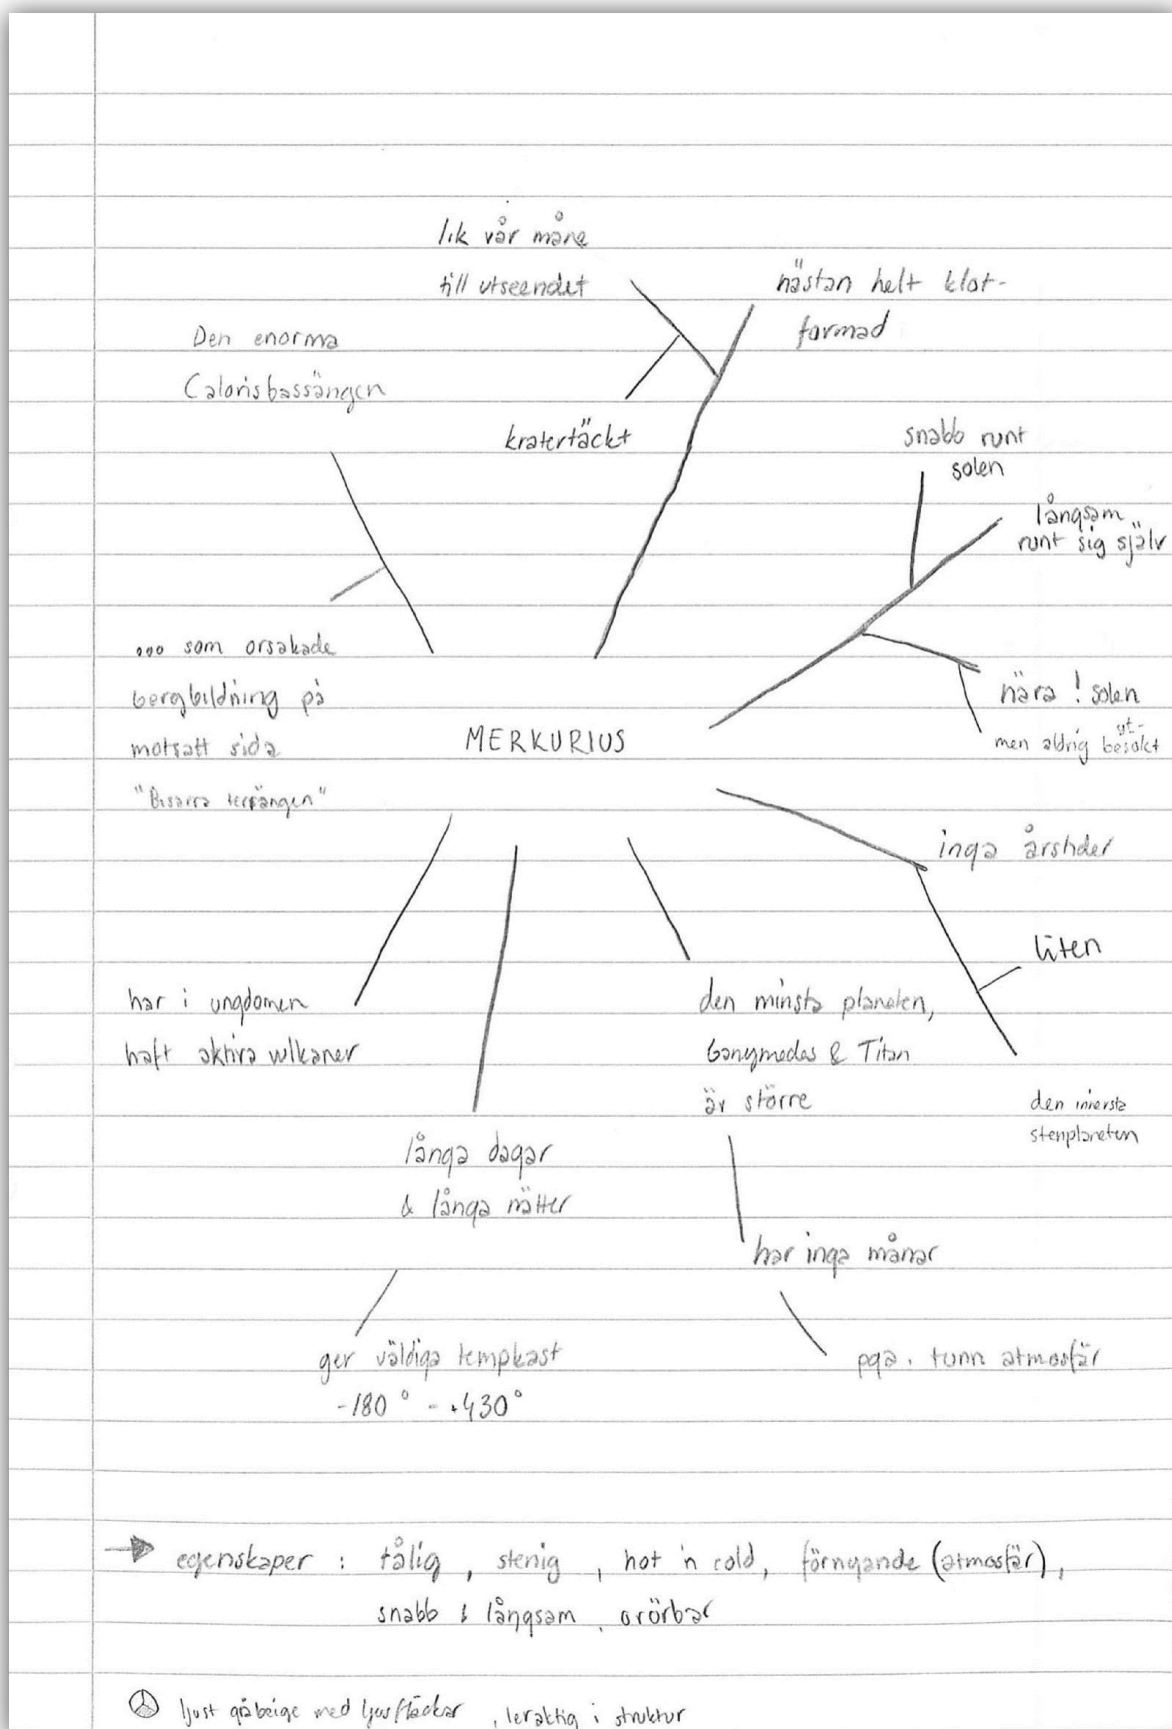 lik vår måne
till utseendet
nästan helt klot-
formad
Den enorma
Calorisbassängen
kratertäckt
snabb runt
solen
långsam
runt sig själv
... som orsakade
bergbildning på
motsatt sida
"Bisarra terrängen"
MERKURIUS
nära! solen
men aldrig besökt
ut-
inga årstider
liten
den innersta
stenplaneten
har i ungdomen
haft aktiva vulkaner
den minsta planeten,
Ganymedes & Titan
är större
långa dagar
& långa nätter
har inga månar
ger väldiga tempkast
-180° - +430°
pga. tunn atmosfär
egenskaper : tålig, stenig, hot 'n cold, förnyande (atmosfär),
snabb & långsam, orörbar
ljust gråbeige med ljusfläckar, leraktig i struktur